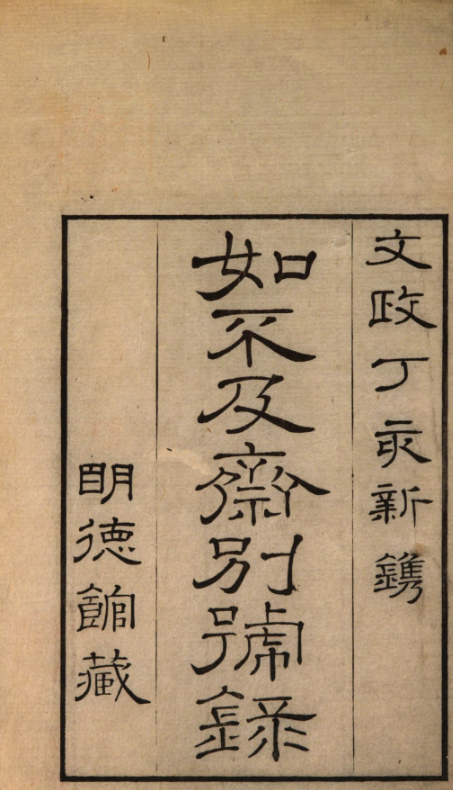 文政丁亥新鐫
如不及齋別號錄
明德館藏